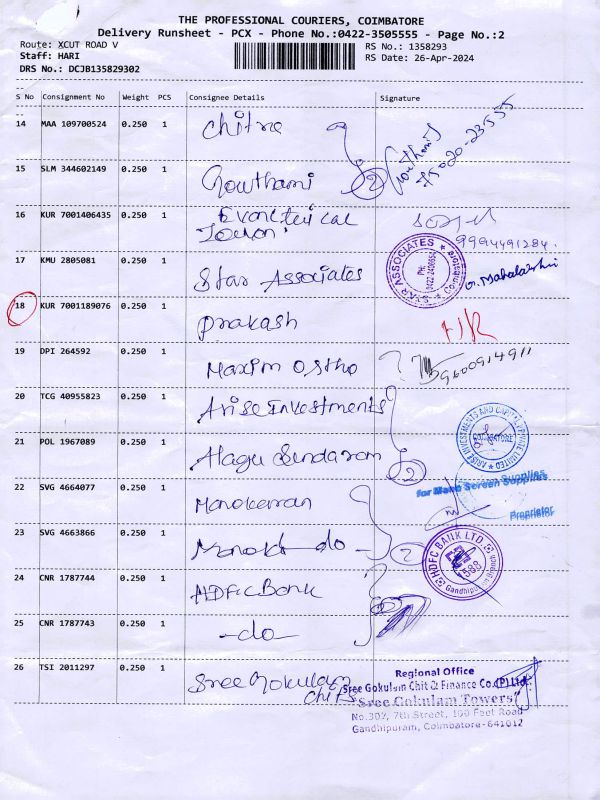 THE PROFESSIONAL COURIERS, COIMBATORE
Delivery Runsheet - PCX - Phone No.:0422-3505555 - Page No.:2
Route: XCUT ROAD V
RS No.: 1358293
Staff: HARI
RS Date: 26-Apr-2024
DRS No.: DCJB135829302
S No Consignment No Weight PCS Consignee Details Signature
14 MAA 109700524 0.250 1 Chitra
15 SLM 344602149 0.250 1 Gowthami 2
16 KUR 7001406435 0.250 1
9994491284
17 KMU 2805081 0.250 1 Star Associates
STAR ASSOCIATES
18 KUR 7001189076 0.250 1 Prakash
19 DPI 264592 0.250 1 Maxim Ostho 9600914911
20 TCG 40955823 0.250 1 Arise Investments
ARISE INVESTMENTS AND CAPITAL PRIVATE LIMITED
COIMBATORE
21 POL 1967089 0.250 1 Alagu Sundaram 2
for Mano Screen Supplies
22 SVG 4664077 0.250 1 Manokaran
Proprietor
23 SVG 4663866 0.250 1 do 2
HDFC BANK LTD.
588
Gandhipuram Branch
24 CNR 1787744 0.250 1 HDFC Bank
25 CNR 1787743 0.250 1 -do-
26 TSI 2011297 0.250 1 Sree Gokulam
Chits
Regional Office
Sree Gokulam Chit & Finance Co.(P)Ltd.
"Sree Gokulam Towers"
No.307, 7th Street, 100 Feet Road
Gandhipuram, Coimbatore-641012